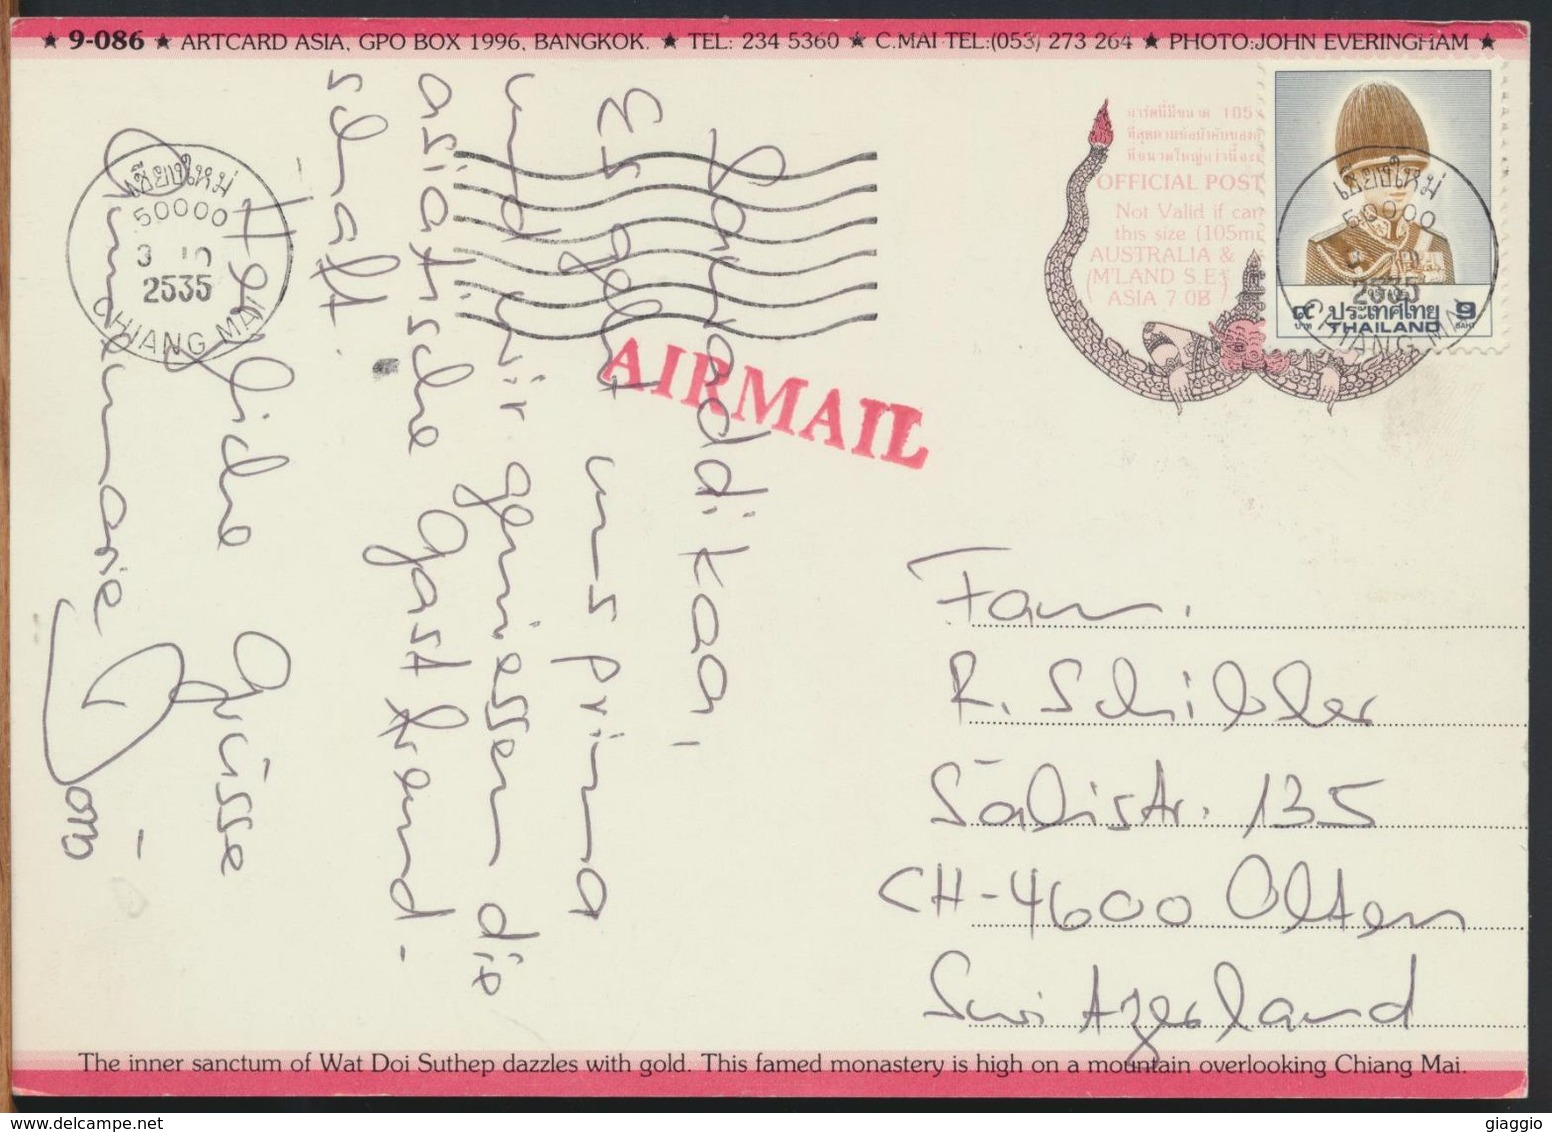 ★ 9-086 ★ ARTCARD ASIA, GPO BOX 1996, BANGKOK. ★ TEL: 234 5360 ★ C.MAI TEL:(053) 273 264 ★ PHOTO:JOHN EVERINGHAM ★
OFFICIAL POST
Not Valid if car
this size (105m
AUSTRALIA &
(M'LAND S.E
ASIA 7.0B
๙ ประเทศไทย 9
บาท THAILAND BAHT
เชียงใหม่
50000
2535
CHIANG MAI
เชียงใหม่
50000
3
2535
CHIANG MAI
AIRMAIL
Sawaddi Kaa,
Es gefällt uns prima
und wir geniessen die
asiatische Gastfreund-
schaft.
Herzliche Grüsse
Annemarie
Fam.
R. Schibler
Sälistr. 135
CH-4600 Olten
Switzerland
The inner sanctum of Wat Doi Suthep dazzles with gold. This famed monastery is high on a mountain overlooking Chiang Mai.
giaggio